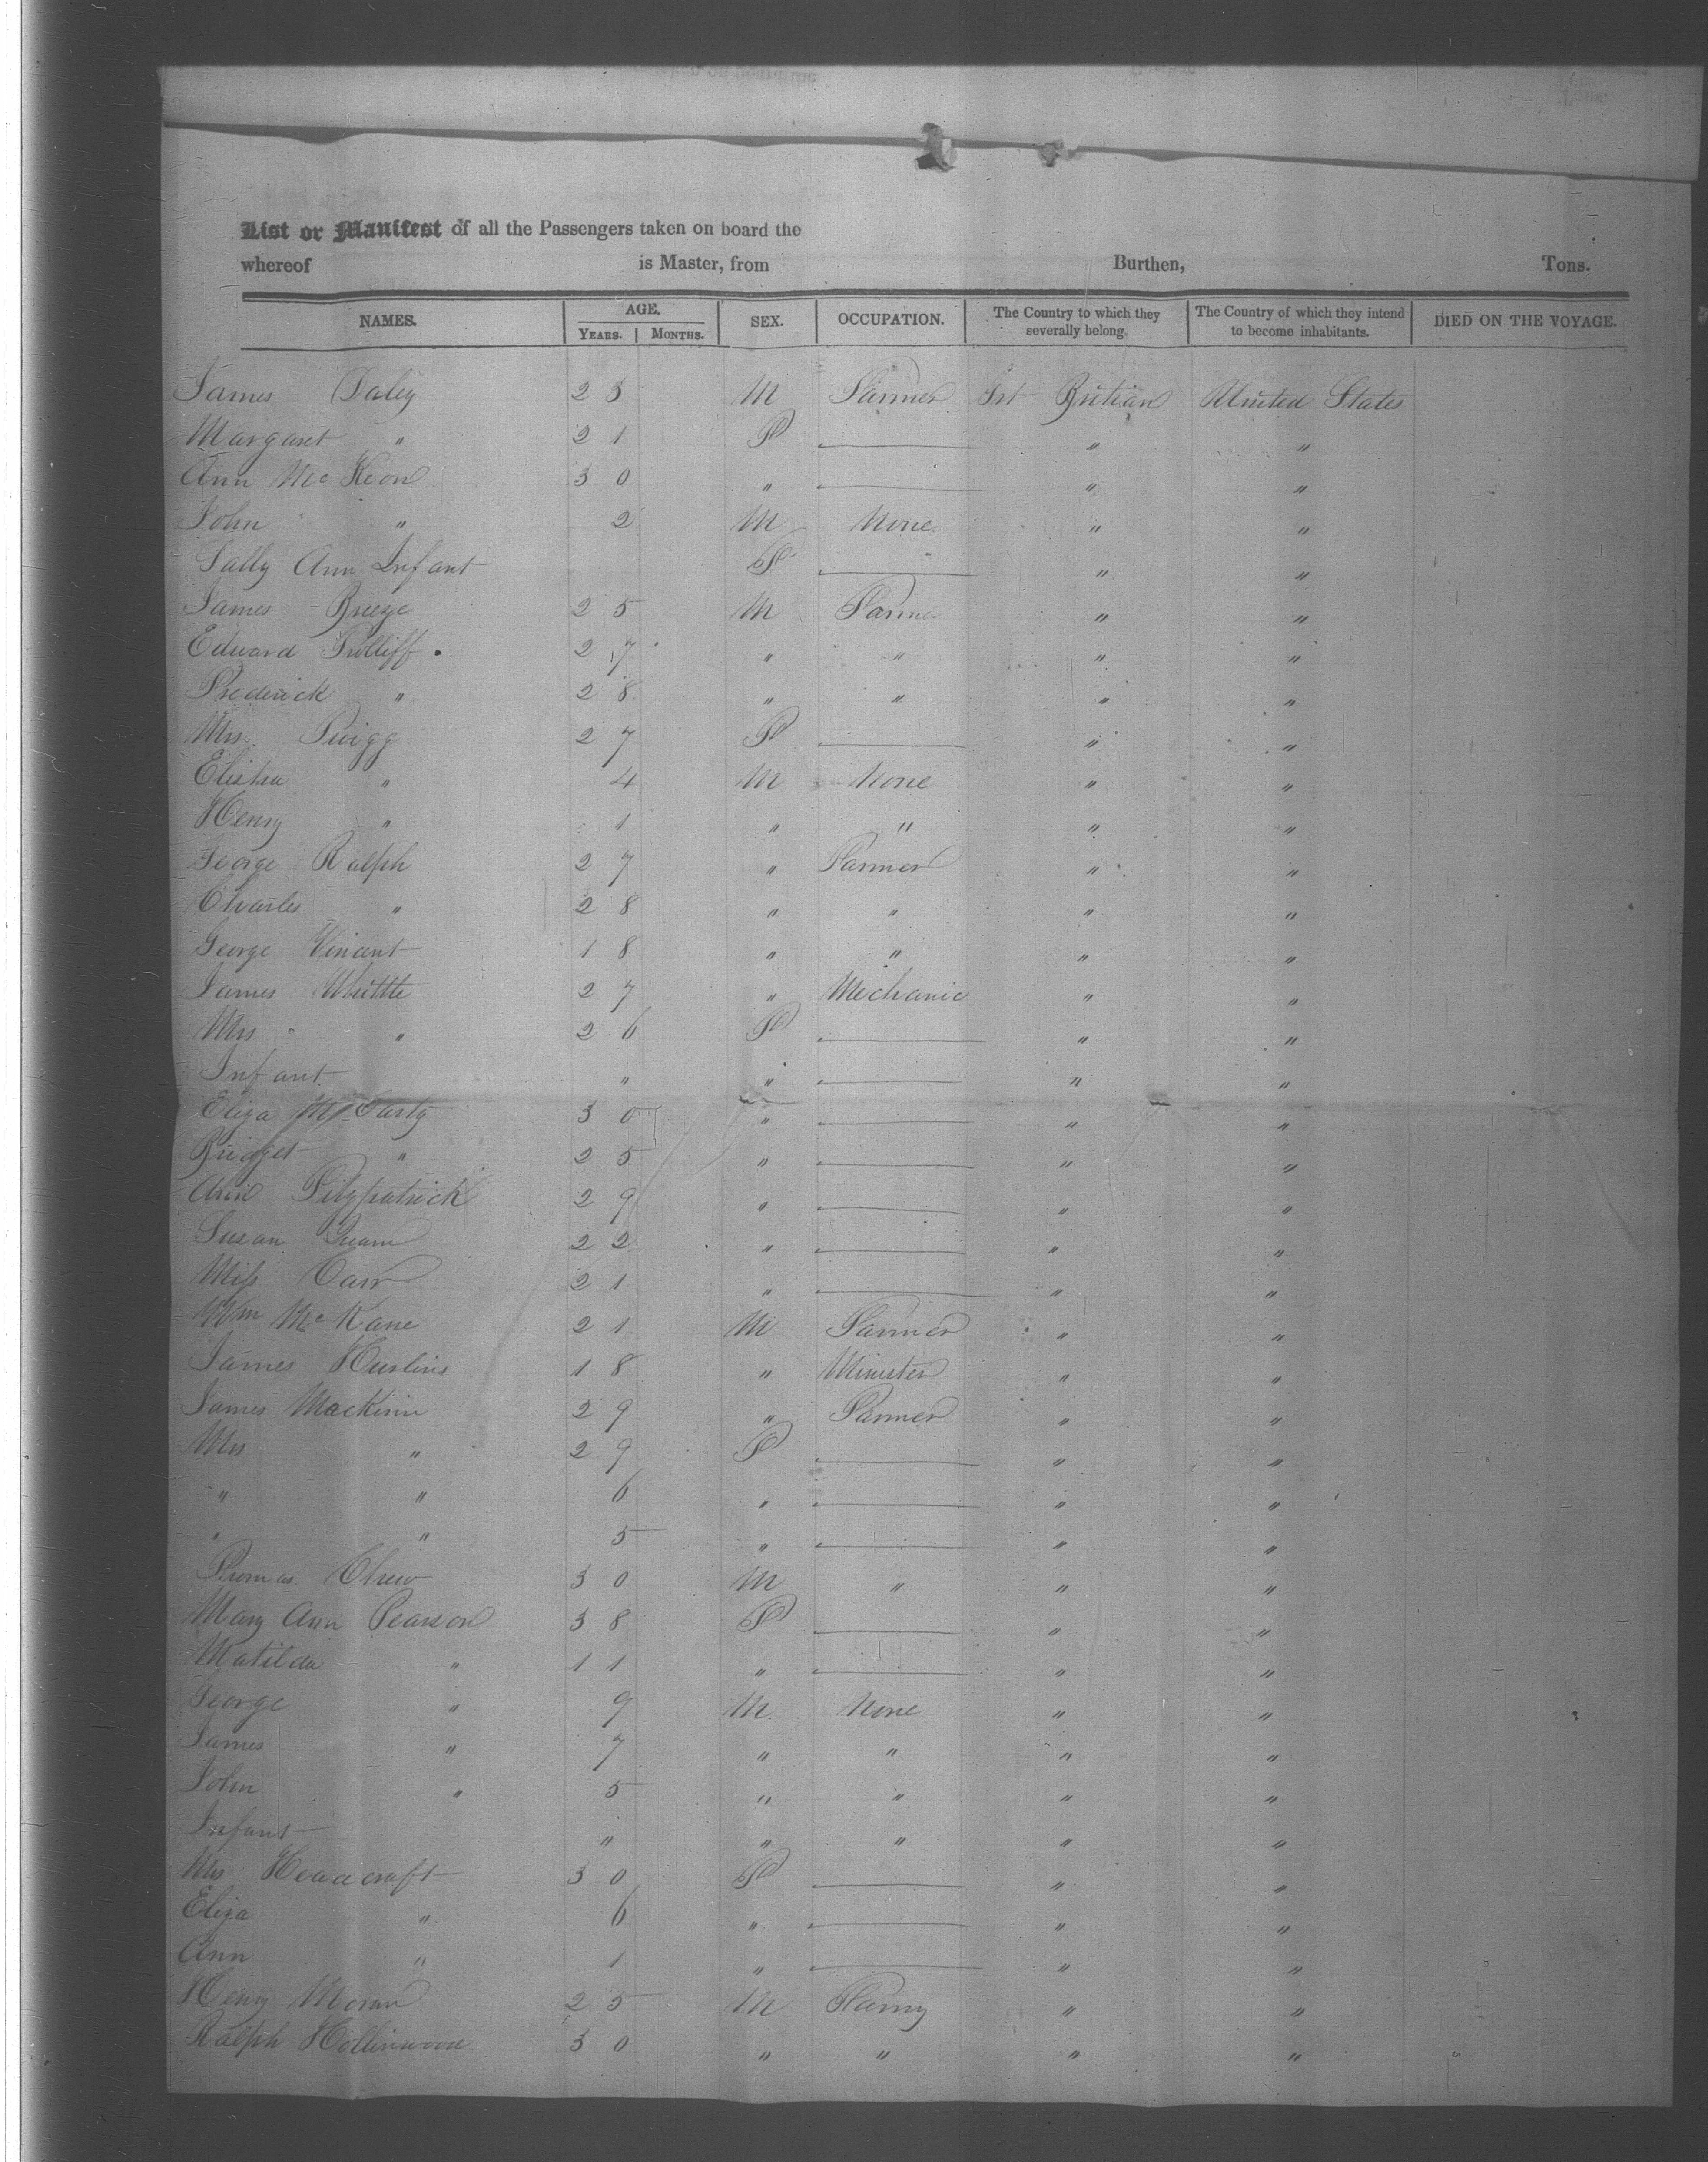 List or Manifest of all the Passengers taken on board the
whereof is Master, from Burthen, Tons.
NAMES. AGE. YEARS. MONTHS. SEX. OCCUPATION. The Country to which they severally belong. The Country of which they intend to become inhabitants. DIED ON THE VOYAGE.
James Daley 23 M Farmer Grt Britian United States
Margaret " 21 F — " "
Ann McKeon 30 " — " "
John " 2 M None " "
Sally Ann Infant F — " "
James Breeze 25 M Farmer " "
Edward 27 " " " "
Frederick " 28 " " " "
Mrs Twigg 27 F — " "
Elisha " 4 M None " "
Henry " 1 " " " "
George Ralph 27 " Farmer " "
Charles " 28 " " " "
George Vincent 18 " " " "
James Whittle 27 " Mechanic " "
Mrs " 26 F — " "
Infant " " — " "
Eliza McCarty 30 " — " "
Bridget " 25 " — " "
Ann Fitzpatrick 29 " — " "
Susan 22 " — " "
Miss Carr 21 " — " "
Wm McKane 21 M Farmer " "
James 18 " Minister " "
James Mackinn 29 " Farmer " "
Mrs " 29 F — " "
" " 6 " — " "
" " 5 " — " "
Thomas Chew 30 M " " "
Mary Ann Pearson 38 F — " "
Matilda " 11 " — " "
George " 9 M None " "
James " 7 " " " "
John " 5 " " " "
Infant " " " " "
Mrs Headcraft 30 F — " "
Eliza " 6 " — " "
Ann " 1 " — " "
Henry Moran 25 M " "
Ralph Hollinwood 30 " " " "